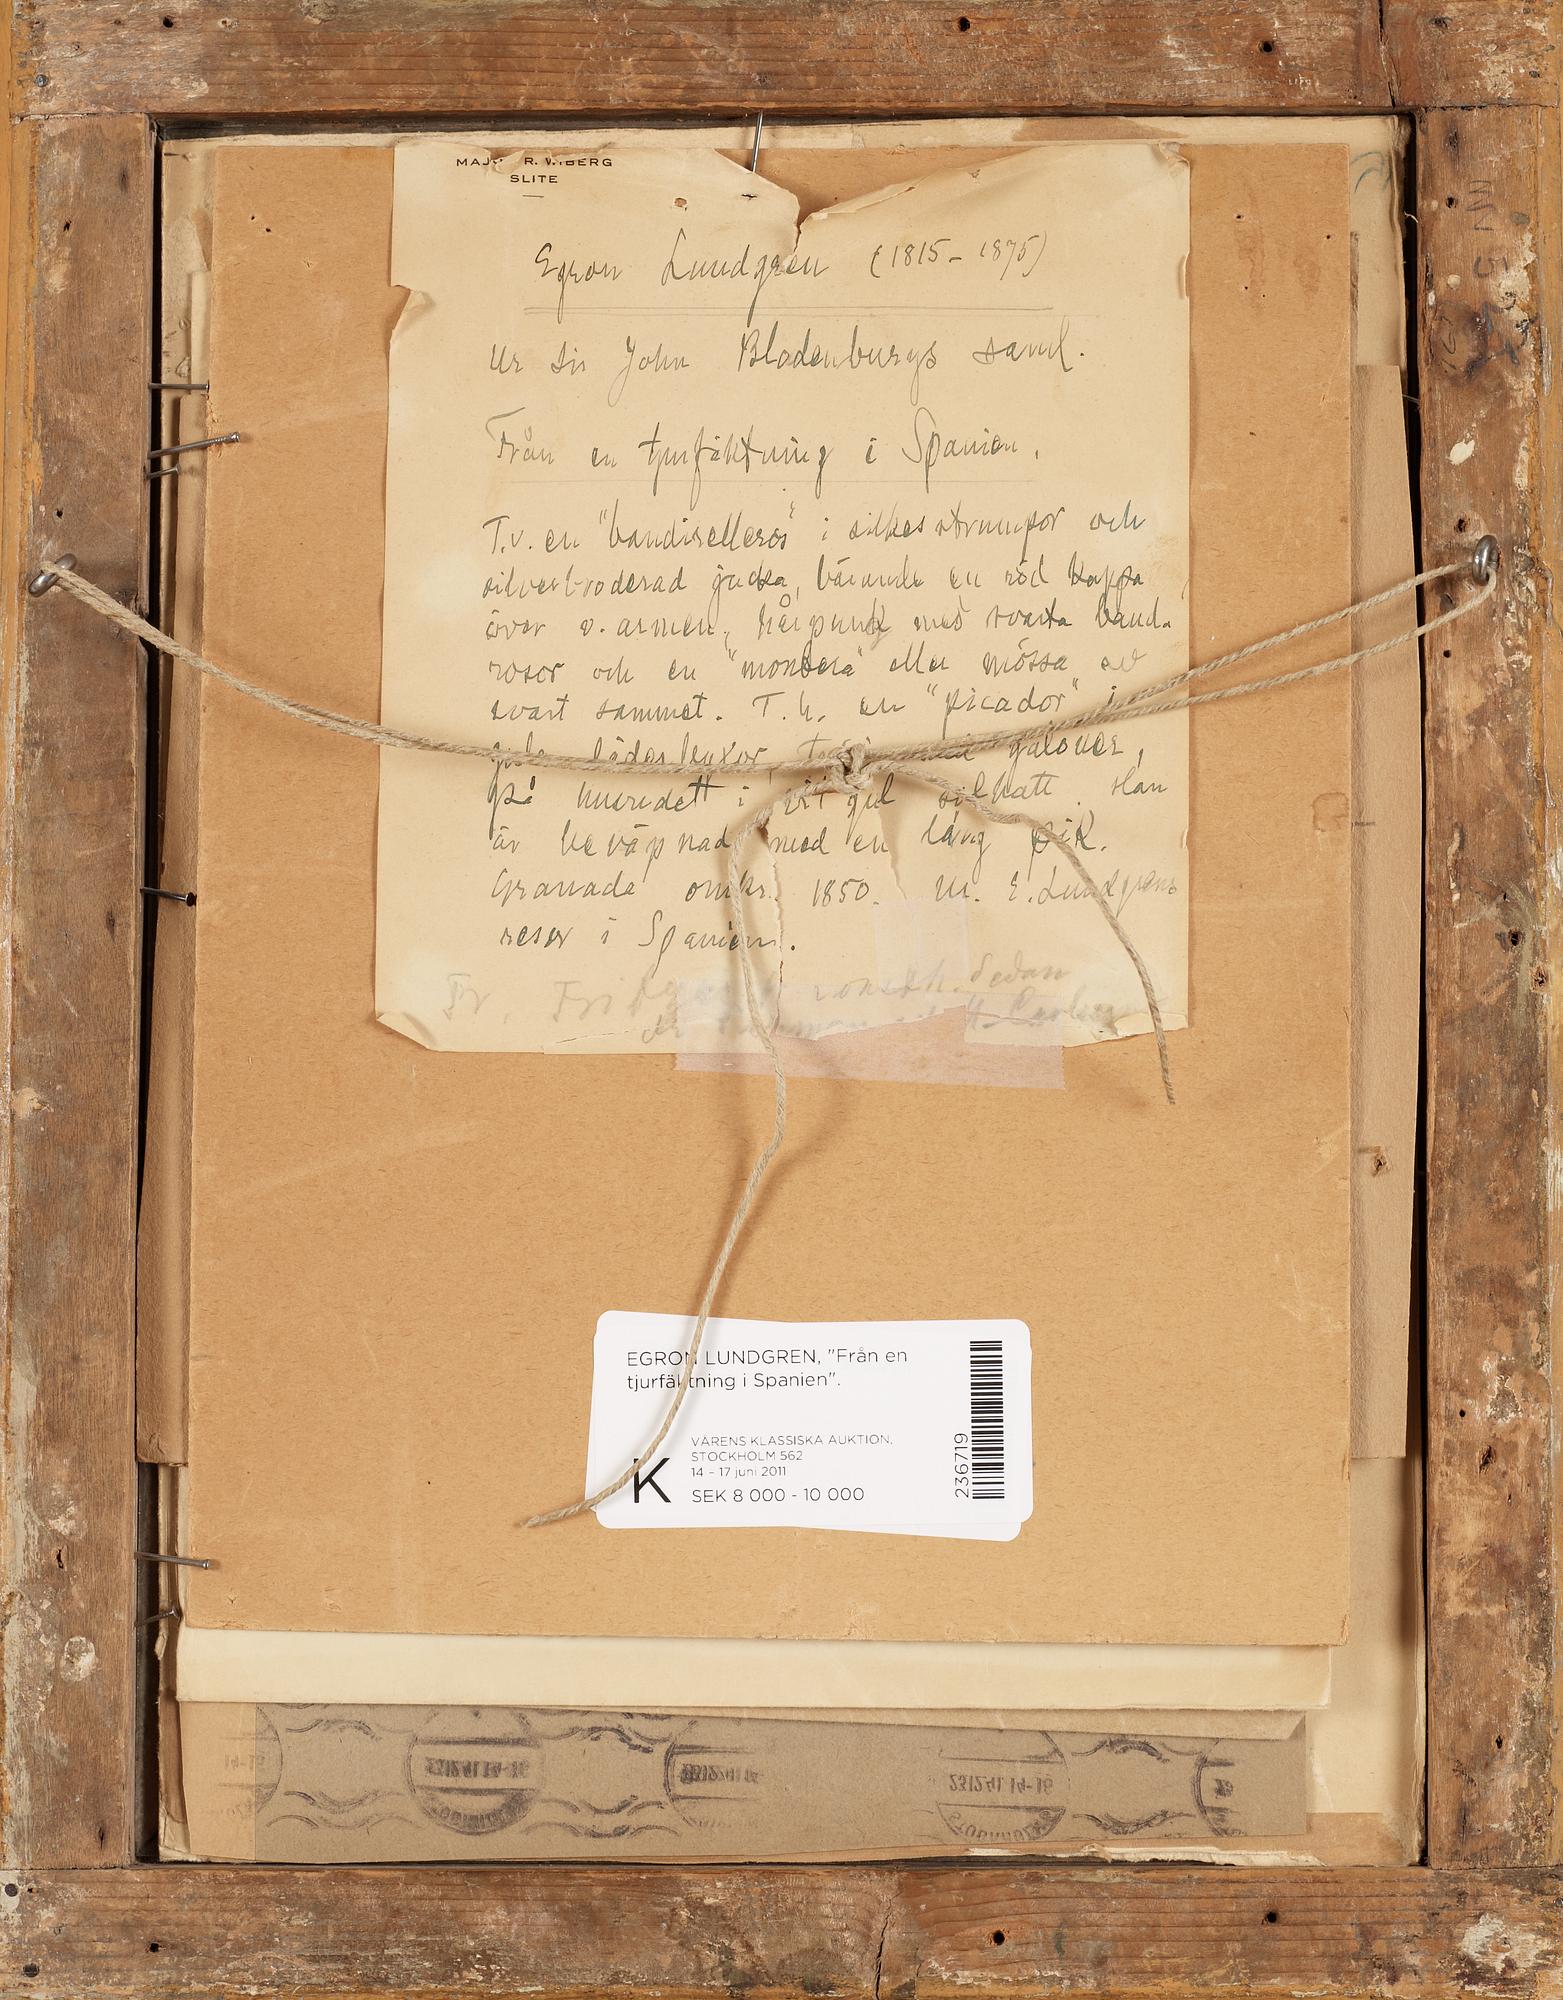 MAJOR R. WIBERG
SLITE
Egron Lundgren (1815 - 1875)
Ur Sir John Bladenburgs saml.
Från en tjurfäktning i Spanien.
T.v. en "bandirelleros" i silkesstrumpor och
silverbroderad jacka, bärande en röd kappa
över v. armen, hårpung med svarta band-
rosor och en "montera" eller mössa av
svart sammet. T.h. en "picador" i
gula läderbyxor, galoner,
på huvudet i vit gul filthatt. Han
är beväpnad med en lång pik.
Granada omkr. 1850. Ur. E. Lundgrens
resor i Spanien.
Fr. Sedan
EGRON LUNDGREN, "Från en
tjurfäktning i Spanien".
VÅRENS KLASSISKA AUKTION,
STOCKHOLM 562
14 - 17 juni 2011
K SEK 8 000 - 10 000
236719
14-16
23.12.41.14-16
23.12.41.14
23.12.41.14-16
STOCKHOLM